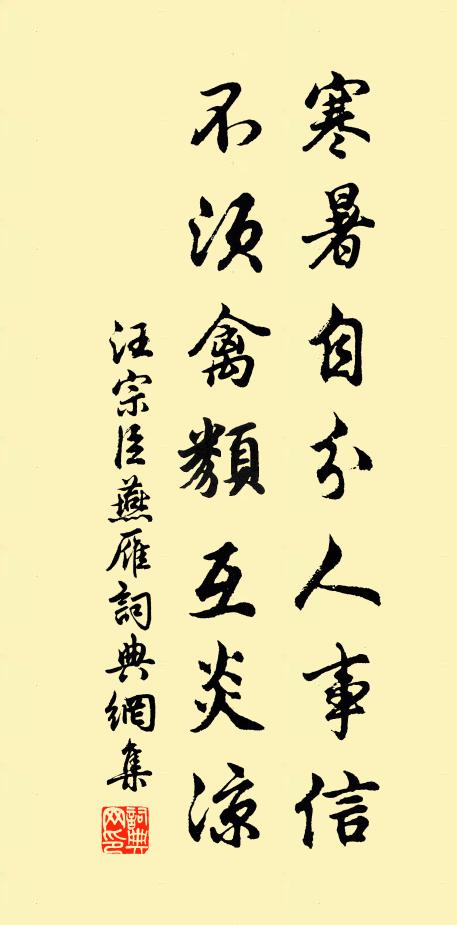 寒暑自分人事信
不須禽類互炎涼
汪宗臣燕雁詞典網集
詞典网印